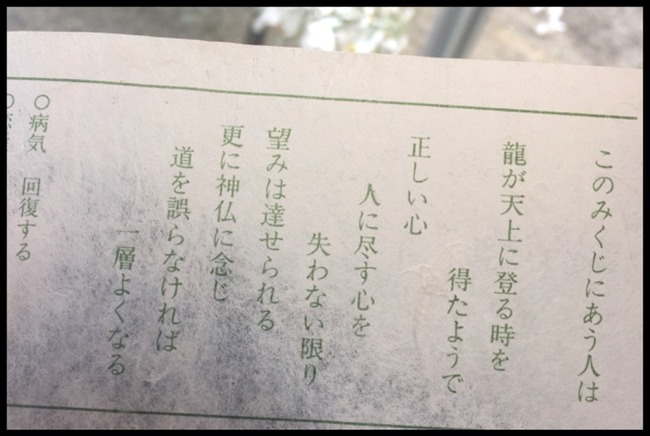 このみくじにあう人は
龍が天上に登る時を
得たようで
正しい心
人に尽す心を
失わない限り
望みは達せられる
更に神仏に念じ
道を誤らなければ
一層よくなる
○病気 回復する